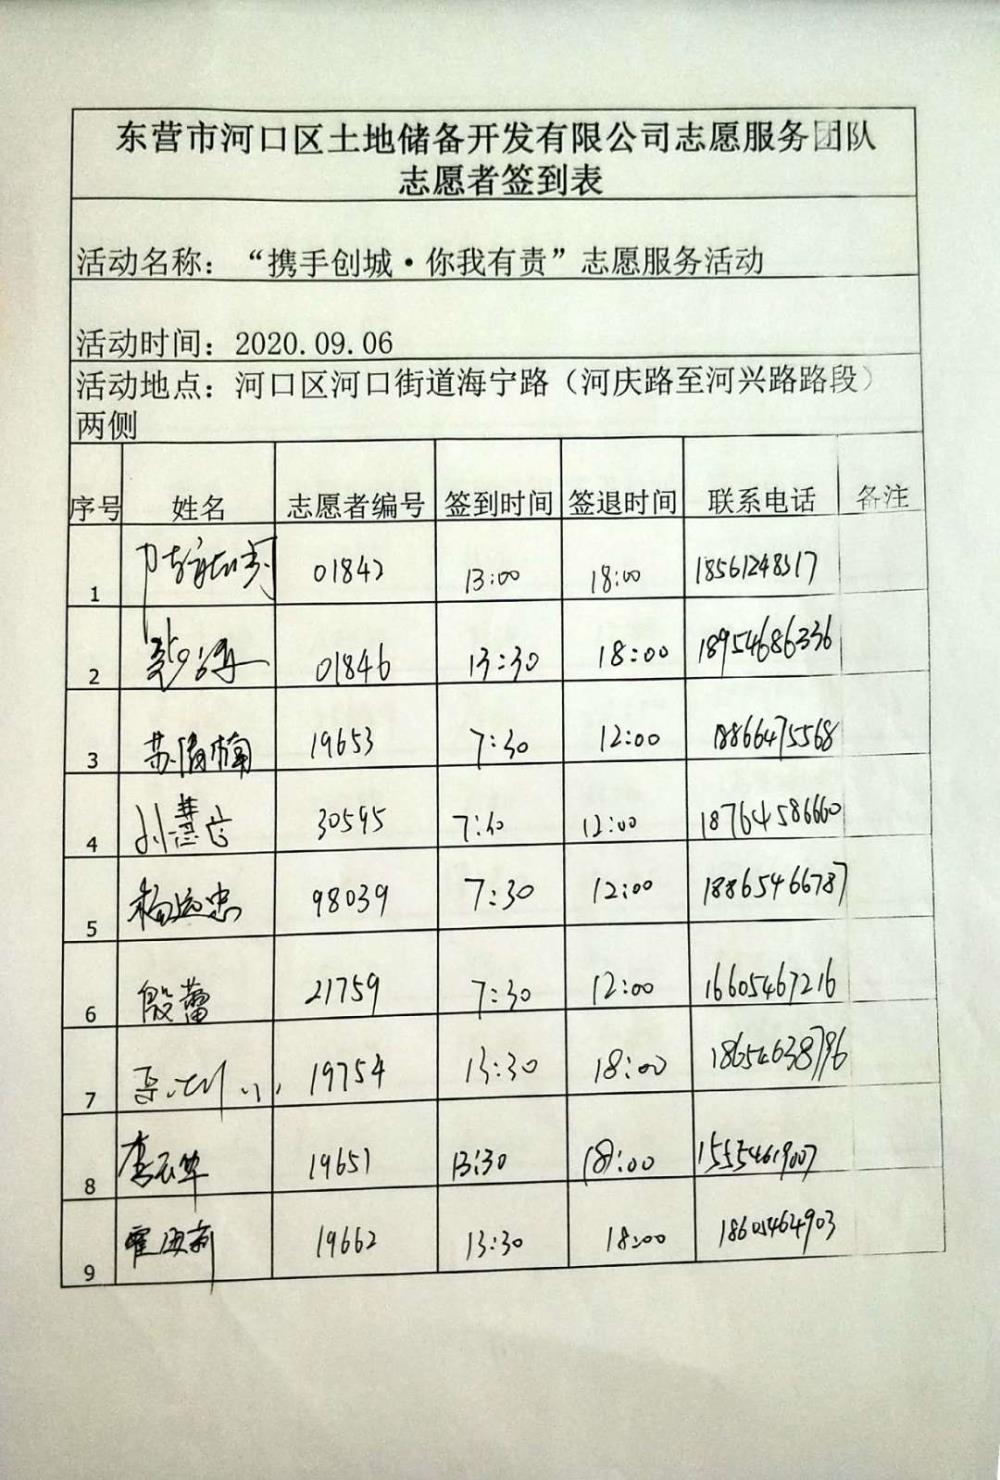 东营市河口区土地储备开发有限公司志愿服务团队
志愿者签到表
活动名称：“携手创城·你我有责”志愿服务活动
活动时间：2020.09.06
活动地点：河口区河口街道海宁路（河庆路至河兴路路段）
两侧
序号 姓名 志愿者编号 签到时间 签退时间 联系电话 备注
1 01842 13:00 18:00 18561248517
2 01846 13:30 18:00 18954686336
3 19653 7:30 12:00 18866475568
4 30595 7:30 12:00 18764586660
5 杨运忠 98039 7:30 12:00 18865466787
6 殷蕾 21759 7:30 12:00 16605467216
7 19754 13:30 18:00 18654638796
8 19651 13:30 18:00 15554619007
9 19662 13:30 18:00 18605464903